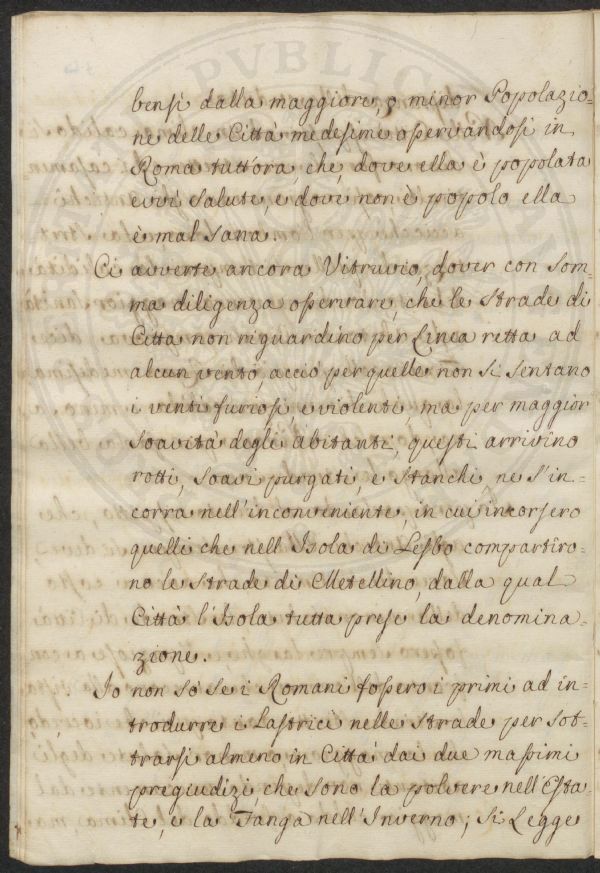 bensì dalla maggiore, o minor Popolazio=
ne delle Città medesime osservandosi in
Roma tutt'ora, che, dove ella è popolata
evvi Salute, e dove non è popolo ella
è mal sana.
Ci avverte ancora Vitruvio, dover con som=
ma diligenza osservare, che le Strade di
Città non riguardino per Linea retta ad
alcun vento, acciò per quelle non si sentano
i venti furiosi, e violenti, ma per maggior
soavità degli abitanti, questi arrivino
rotti, soavi purgati, e stanchi ne s'in=
corra nell'inconveniente, in cui incorsero
quelli che nell'Isola di Lesbo compartiro=
no le Strade di Metellino, dalla qual
Città l'Isola tutta prese la denomina=
zione.
Io non sò se i Romani fossero i primi ad in=
trodurre i Lastrici nelle Strade per sot=
trarsi almeno in Città dai due massimi
pregiudizj, che sono la polvere nell'Esta=
te, e la Fanga nell'Inverno; Si Legge